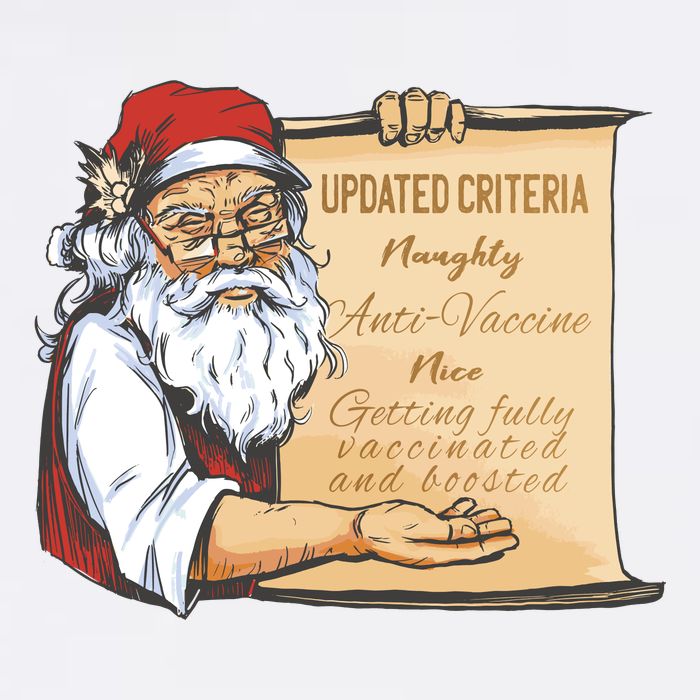 UPDATED CRITERIA
Naughty
Anti-Vaccine
Nice
Getting fully
vaccinated
and boosted